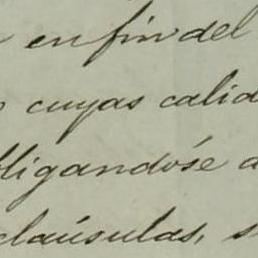 en fin del
cuyas calid
ligandóse a
clausúlas, s